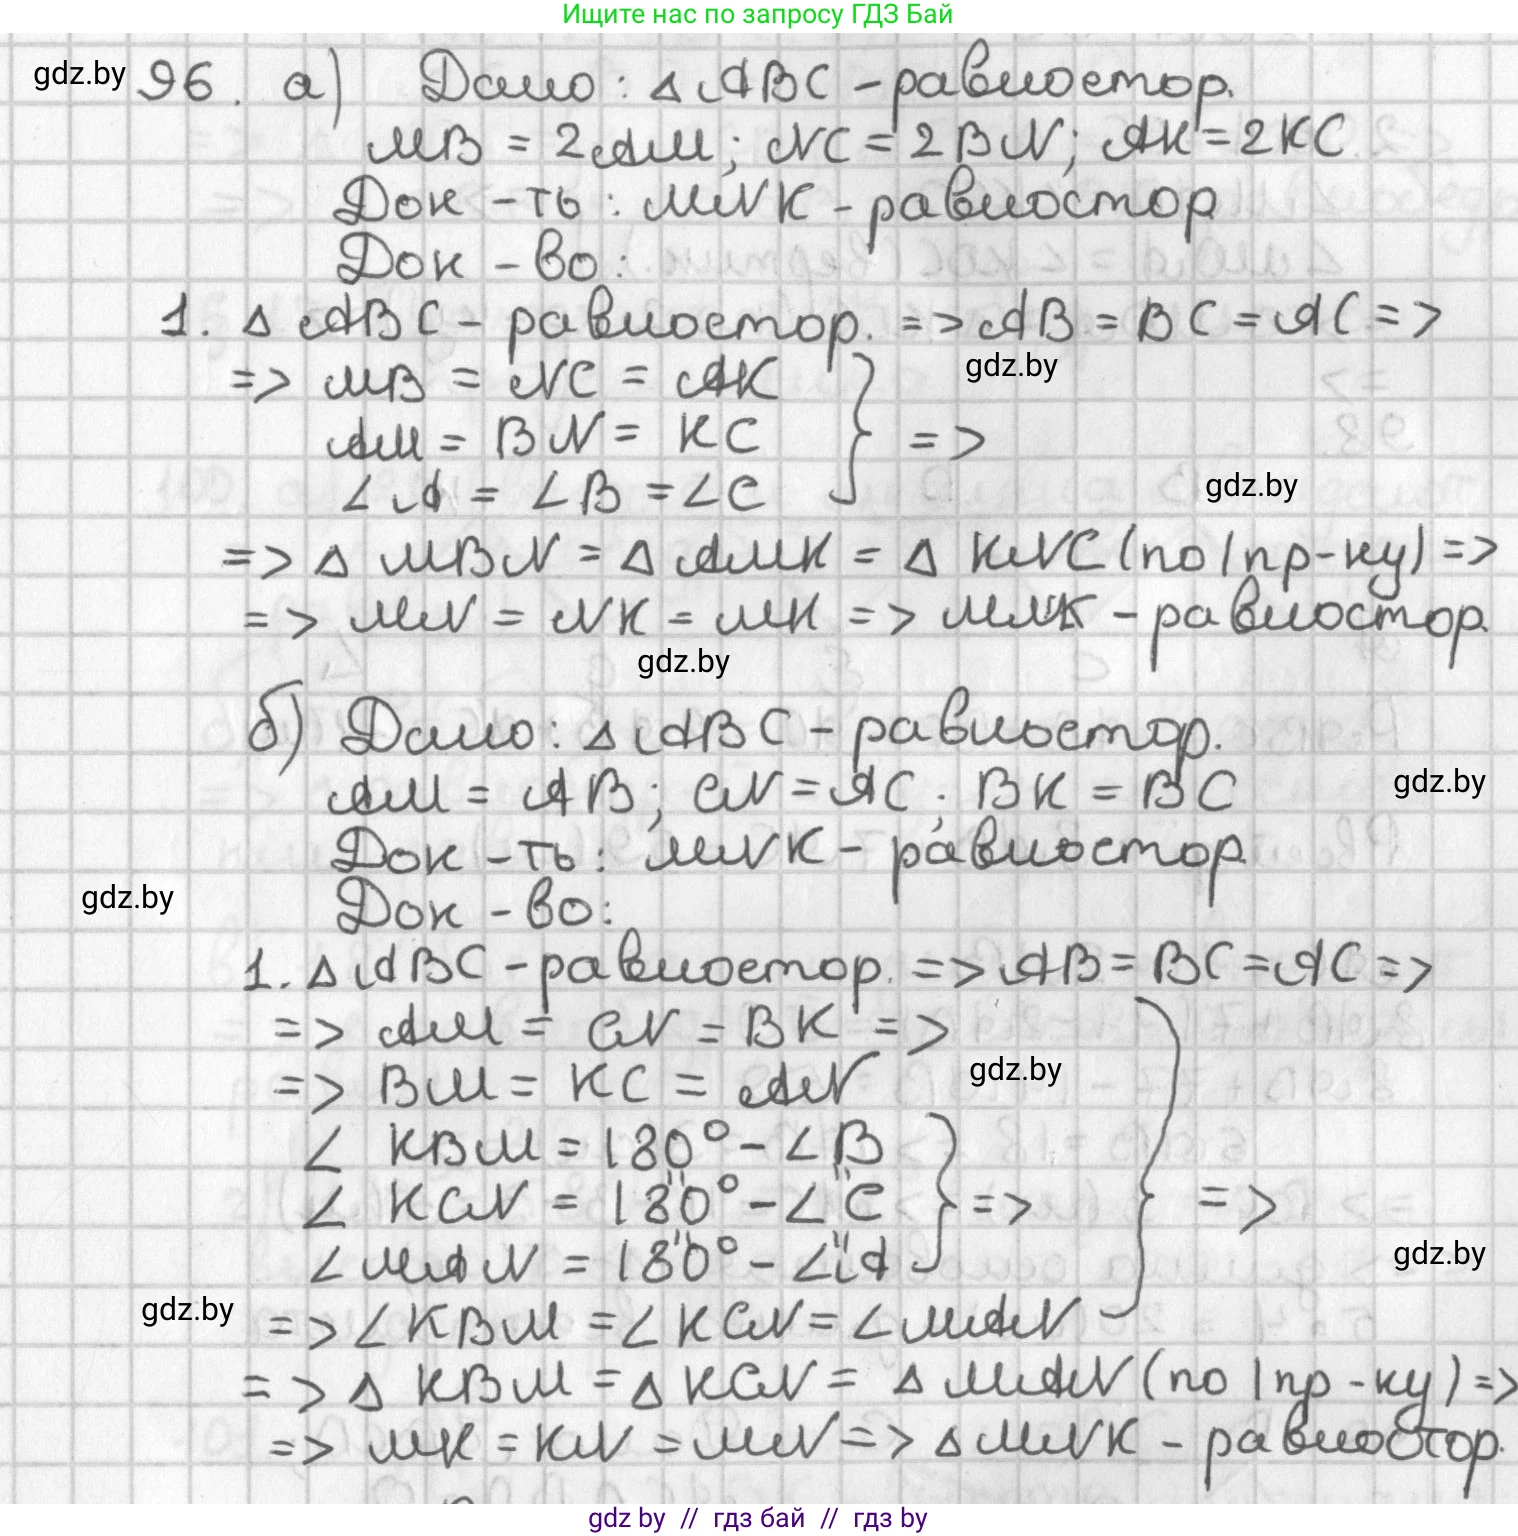 Ищите нас по запросу ГДЗ Бай
gdz.by
96. а) Дано: △ ABC - равностор.
MB = 2AM; NC = 2BN; AK = 2KC
Док-ть: MNK - равностор
Док-во:
1. △ ABC - равностор. => AB = BC = AC =>
gdz.by
=> MB = NC = AK
AM = BN = KC } =>
∠A = ∠B = ∠C
gdz.by
=> △ MBN = △ AMK = △ KNC (по I пр-ку) =>
=> MN = NK = MK => MNK - равностор
gdz.by
б) Дано: △ ABC - равностор.
AM = AB; CN = AC; BK = BC
gdz.by
Док-ть: MNK - равностор
gdz.by
Док-во:
1. △ ABC - равностор. => AB = BC = AC =>
=> AM = CN = BK =>
gdz.by
=> BM = KC = AN
∠ KBM = 180° - ∠B
∠ KCN = 180° - ∠C } => } =>
∠ MAN = 180° - ∠A
gdz.by
gdz.by
=> ∠KBM = ∠KCN = ∠MAN
=> △ KBM = △ KCN = △ MAN (по I пр-ку) =>
=> MK = KN = MN => △ MNK - равностор.
gdz by // гдз бай // гдз by